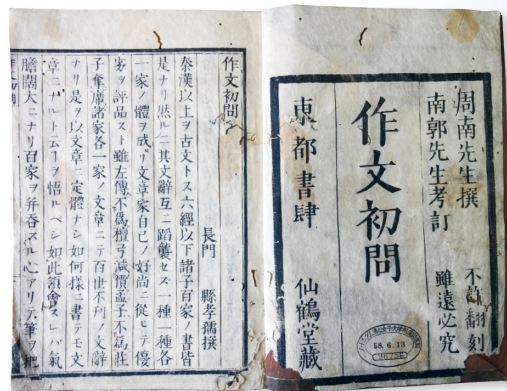 周南先生撰
南郭先生考訂
不許翻刻
雖遠必究
作文初問
東都書肆
仙鶴堂藏
58.6.13
作文初問
長門 縣孝孺撰
秦漢以上ヲ古文トス六經以下諸子百家ノ書皆
是ナリ然ルニ其文辭互ニ蹈襲セス一種一種各
一家ノ體ヲ成ス文章家自己ノ好尚ニ從ヒテ優
劣ヲ評品スト雖左傳不爲檀弓減價孟子不爲莊
子奪席諸家各一家ノ文章ニテ百世不刊ノ文辭
ナリ是ヲ以文章ニ定體ナシ如何樣ニ書テモ文
章ニナルト云フヿヲ悟ルベシ如此領會スレバ氣
膽闊大ニナリ百家ヲ并吞スル心アリテ筆ヲ把
作文初問